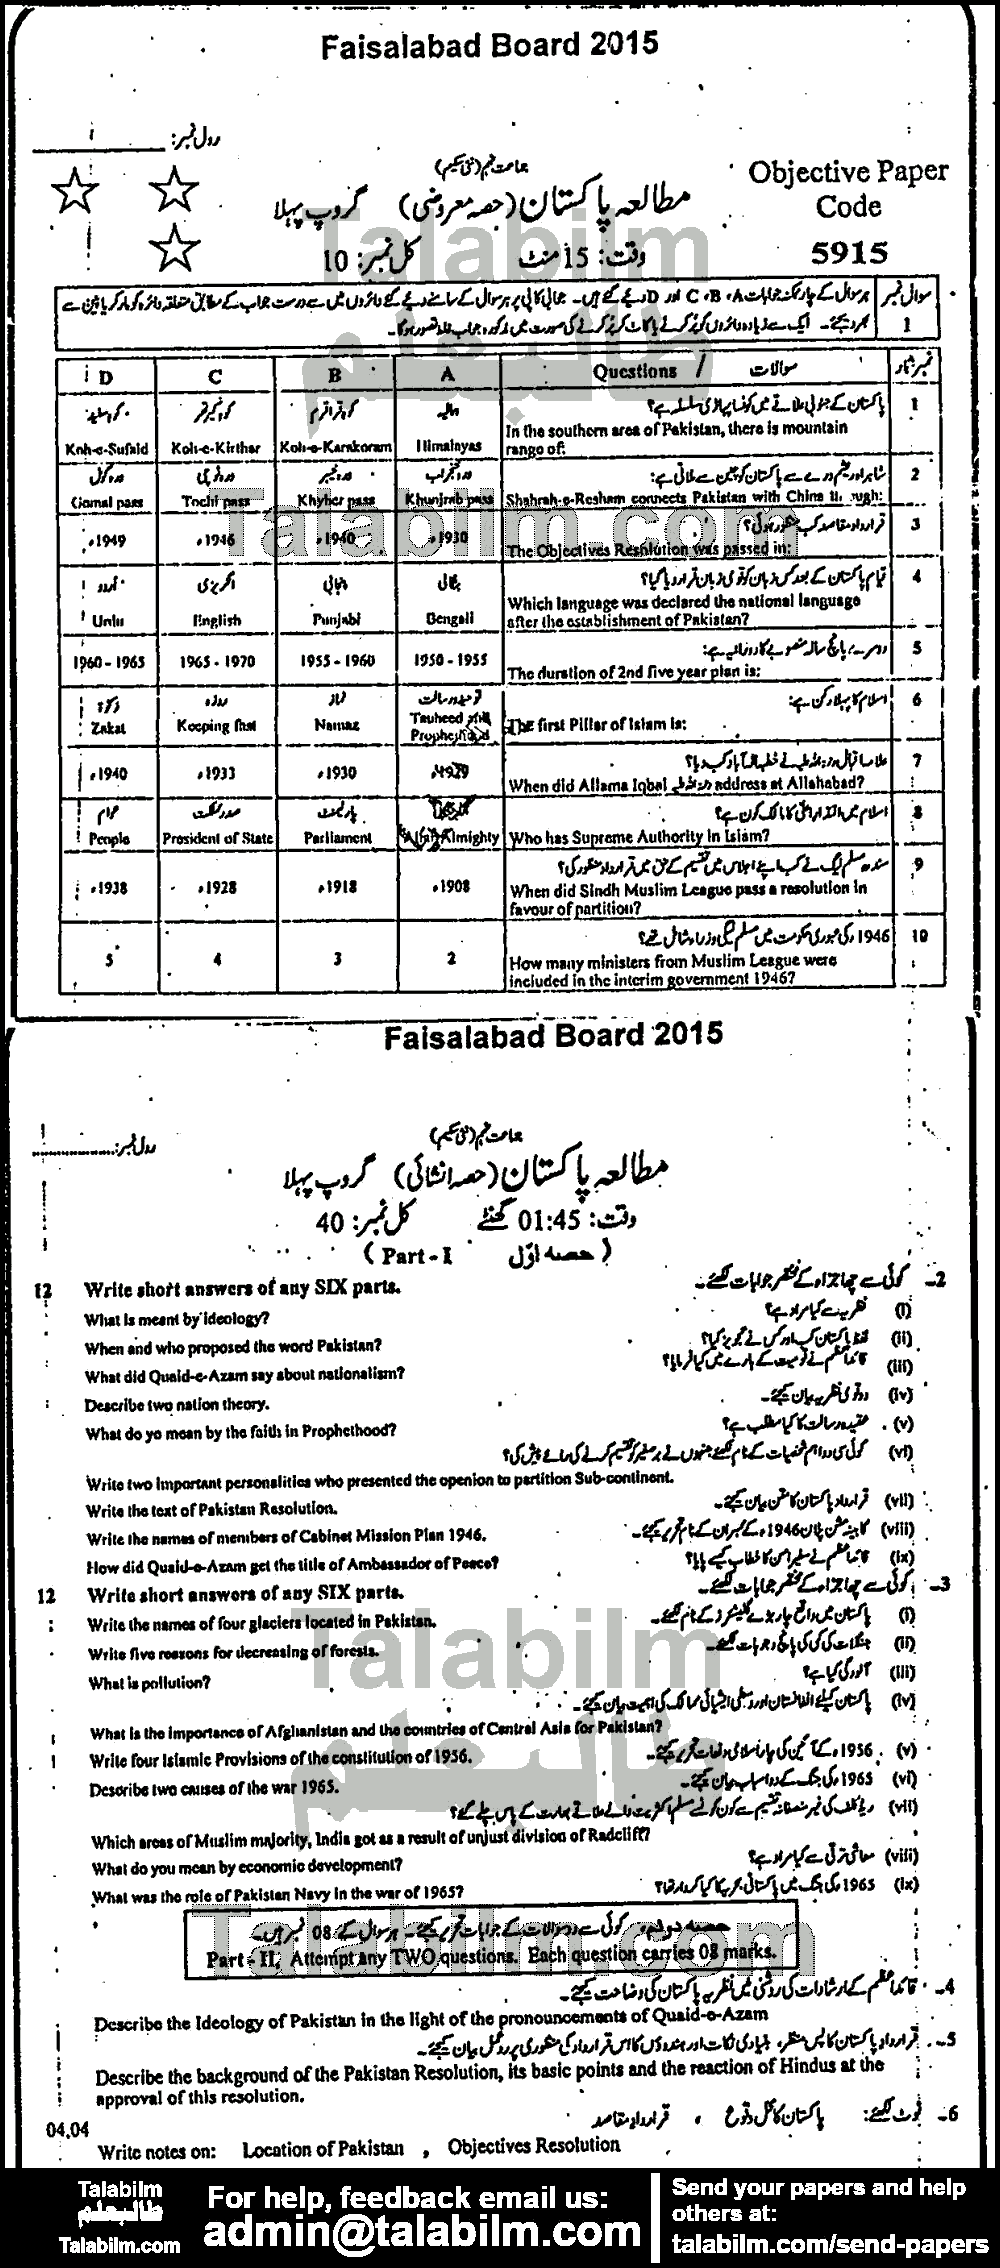 Faisalabad Board 2015
رول نمبر:
جماعت نہم (نئی سکیم)
Objective Paper
Code
5915
مطالعہ پاکستان (حصہ معروضی) گروپ پہلا
وقت: 15 منٹ کل نمبر: 10
سوال نمبر 1
ہر سوال کے چار ممکنہ جوابات A، B، C اور D دیئے گئے ہیں۔ جوابی کاپی پر ہر سوال کے سامنے دیئے گئے دائروں میں سے درست جواب کے مطابق متعلقہ دائرہ کو مارکر یا پین سے
بھر دیجئے۔ ایک سے زیادہ دائروں کو پُر کرنے یا کاٹ کر پُر کرنے کی صورت میں مذکورہ جواب غلط تصور ہوگا۔
D C B A Questions / سوالات نمبر شمار
کوہ سفید کوہ کیرتھر کوہ قراقرم ہمالیہ پاکستان کے جنوبی علاقے میں کونسا پہاڑی سلسلہ ہے؟ 1
Koh-e-Sufaid Koh-e-Kirthar Koh-e-Karakoram Himalnyas In the southern area of Pakistan, there is mountain
range of:
درہ گومل درہ ٹوچی درہ خیبر درہ خنجراب شاہراہ ریشم درے سے پاکستان کو چین سے ملاتی ہے: 2
Gomal pass Tochi pass Khyber pass Khunjrab pass Shahrah-e-Resham connects Pakistan with China through:
1949ء 1946ء 1940ء 1930ء قرارداد مقاصد کب منظور ہوئی؟ 3
The Objectives Resolution was passed in:
اُردو انگریزی پنجابی بنگالی قیام پاکستان کے بعد کس زبان کو قومی زبان قرار دیا گیا؟ 4
Urdu English Punjabi Bengali Which language was declared the national language
after the establishment of Pakistan?
1960 - 1965 1965 - 1970 1955 - 1960 1950 - 1955 دوسرے پانچ سالہ منصوبے کا دورانیہ ہے: 5
The duration of 2nd five year plan is:
زکوٰۃ روزہ نماز توحید و رسالت اسلام کا پہلا رکن ہے: 6
Zakat Keeping fast Namaz Tauheed Prophethood The first Pillar of Islam is:
1940ء 1933ء 1930ء 1929 علامہ اقبال رحمۃ اللہ علیہ نے خطبہ الٰہ آباد کب دیا؟ 7
When did Allama Iqbal رحمۃ اللہ علیہ address at Allahabad?
عوام صدر مملکت پارلیمنٹ اسلام میں اقتدار اعلیٰ کا مالک کون ہے؟ 8
People President of State Parliament Allah Almighty Who has Supreme Authority in Islam?
1938ء 1928ء 1918ء 1908ء سندھ مسلم لیگ نے کب اپنے اجلاس میں تقسیم کے حق میں قرارداد منظور کی؟ 9
When did Sindh Muslim League pass a resolution in
favour of partition?
5 4 3 2 1946ء کی عبوری حکومت میں مسلم لیگی وزراء شامل تھے؟ 10
How many ministers from Muslim League were
included in the interim government 1946?
Faisalabad Board 2015
رول نمبر:
جماعت نہم (نئی سکیم)
مطالعہ پاکستان (حصہ انشائی) گروپ پہلا
وقت: 01:45 گھنٹے کل نمبر: 40
(Part - I حصہ اوّل)
12 Write short answers of any SIX parts. 2۔ کوئی سے چھ اجزاء کے مختصر جوابات لکھئے۔
What is meant by ideology? (i) نظریہ سے کیا مراد ہے؟
When and who proposed the word Pakistan? (ii) لفظ پاکستان کب اور کس نے تجویز کیا؟
What did Quaid-e-Azam say about nationalism? (iii) قائداعظم نے قومیت کے بارے میں کیا فرمایا؟
Describe two nation theory. (iv) دو قومی نظریہ بیان کیجئے۔
What do yo mean by the faith in Prophethood? (v) عقیدہ رسالت کا کیا مطلب ہے؟
(vi) کوئی سی دو اہم شخصیات کے نام لکھئے جنہوں نے برصغیر کو تقسیم کرنے کی رائے پیش کی؟
Write two important personalities who presented the openion to partition Sub-continent.
Write the text of Pakistan Resolution. (vii) قرارداد پاکستان کا متن بیان کیجئے۔
Write the names of members of Cabinet Mission Plan 1946. (viii) کابینہ مشن پلان 1946ء کے ممبران کے نام تحریر کیجئے۔
How did Quaid-e-Azam get the title of Ambassador of Peace? (ix) قائداعظم نے سفیر امن کا خطاب کیسے پایا؟
12 Write short answers of any SIX parts. 3۔ کوئی سے چھ اجزاء کے مختصر جوابات لکھئے۔
Write the names of four glaciers located in Pakistan. (i) پاکستان میں واقع چار بڑے گلیشئرز کے نام لکھئے۔
Write five reasons for decreasing of forests. (ii) جنگلات کی کمی کی پانچ وجوہات لکھئے۔
What is pollution? (iii) آلودگی کیا ہے؟
(iv) پاکستان کیلئے افغانستان اور وسطی ایشیائی ممالک کی اہمیت بیان کیجئے۔
What is the importance of Afghanistan and the countries of Central Asia for Pakistan?
Write four Islamic Provisions of the constitution of 1956. (v) 1956ء کے آئین کی چار اسلامی دفعات تحریر کیجئے۔
Describe two causes of the war 1965. (vi) 1965ء کی جنگ کے دو اسباب بیان کیجئے۔
(vii) ریڈکلف کی غیر منصفانہ تقسیم سے کون کونسے مسلم اکثریت والے علاقے بھارت کے پاس چلے گئے؟
Which areas of Muslim majority, India got as a result of unjust division of Radcliff?
What do you mean by economic development? (viii) معاشی ترقی سے کیا مراد ہے؟
What was the role of Pakistan Navy in the war of 1965? (ix) 1965ء کی جنگ میں پاکستانی بحریہ کا کیا کردار تھا؟
حصہ دوم، کوئی سے دو سوالات کے جوابات تحریر کیجئے۔ ہر سوال کے 08 نمبر ہیں۔
Part - II, Attempt any TWO questions. Each question carries 08 marks.
4۔ قائداعظم کے ارشادات کی روشنی میں نظریہ پاکستان کی وضاحت کیجئے۔
Describe the Ideology of Pakistan in the light of the pronouncements of Quaid-e-Azam
5۔ قرارداد پاکستان کا پس منظر، بنیادی نکات اور ہندوؤں کا اس قرارداد کی منظوری پر ردعمل بیان کیجئے۔
Describe the background of the Pakistan Resolution, its basic points and the reaction of Hindus at the
approval of this resolution.
6۔ نوٹ لکھئے: پاکستان کا محل وقوع ، قرارداد مقاصد
04,04
Write notes on: Location of Pakistan , Objectives Resolution
Talabilm
طالبعلم
Talabilm.com
For help, feedback email us:
admin@talabilm.com
Send your papers and help
others at:
talabilm.com/send-papers